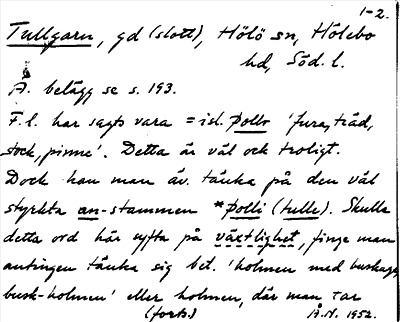 1-2.
Tullgarn, gd (slott), Hölö sn, Hölebo
hd, Söd. l.
Å. belägg se s. 193.
F.l. har sagts vara = isl. þollr 'fura, träd,
stock, pinne'. Detta är väl ock troligt.
Dock kan man äv. tänka på den väl
styrkta an-stammen *þolli (tulle). Skulle
detta ord här syfta på växtlighet, finge man
antingen tänka sig bet. 'holmen med buskage,
busk-holmen' eller holmen, där man tar
(forts.) Å.N. 1952.